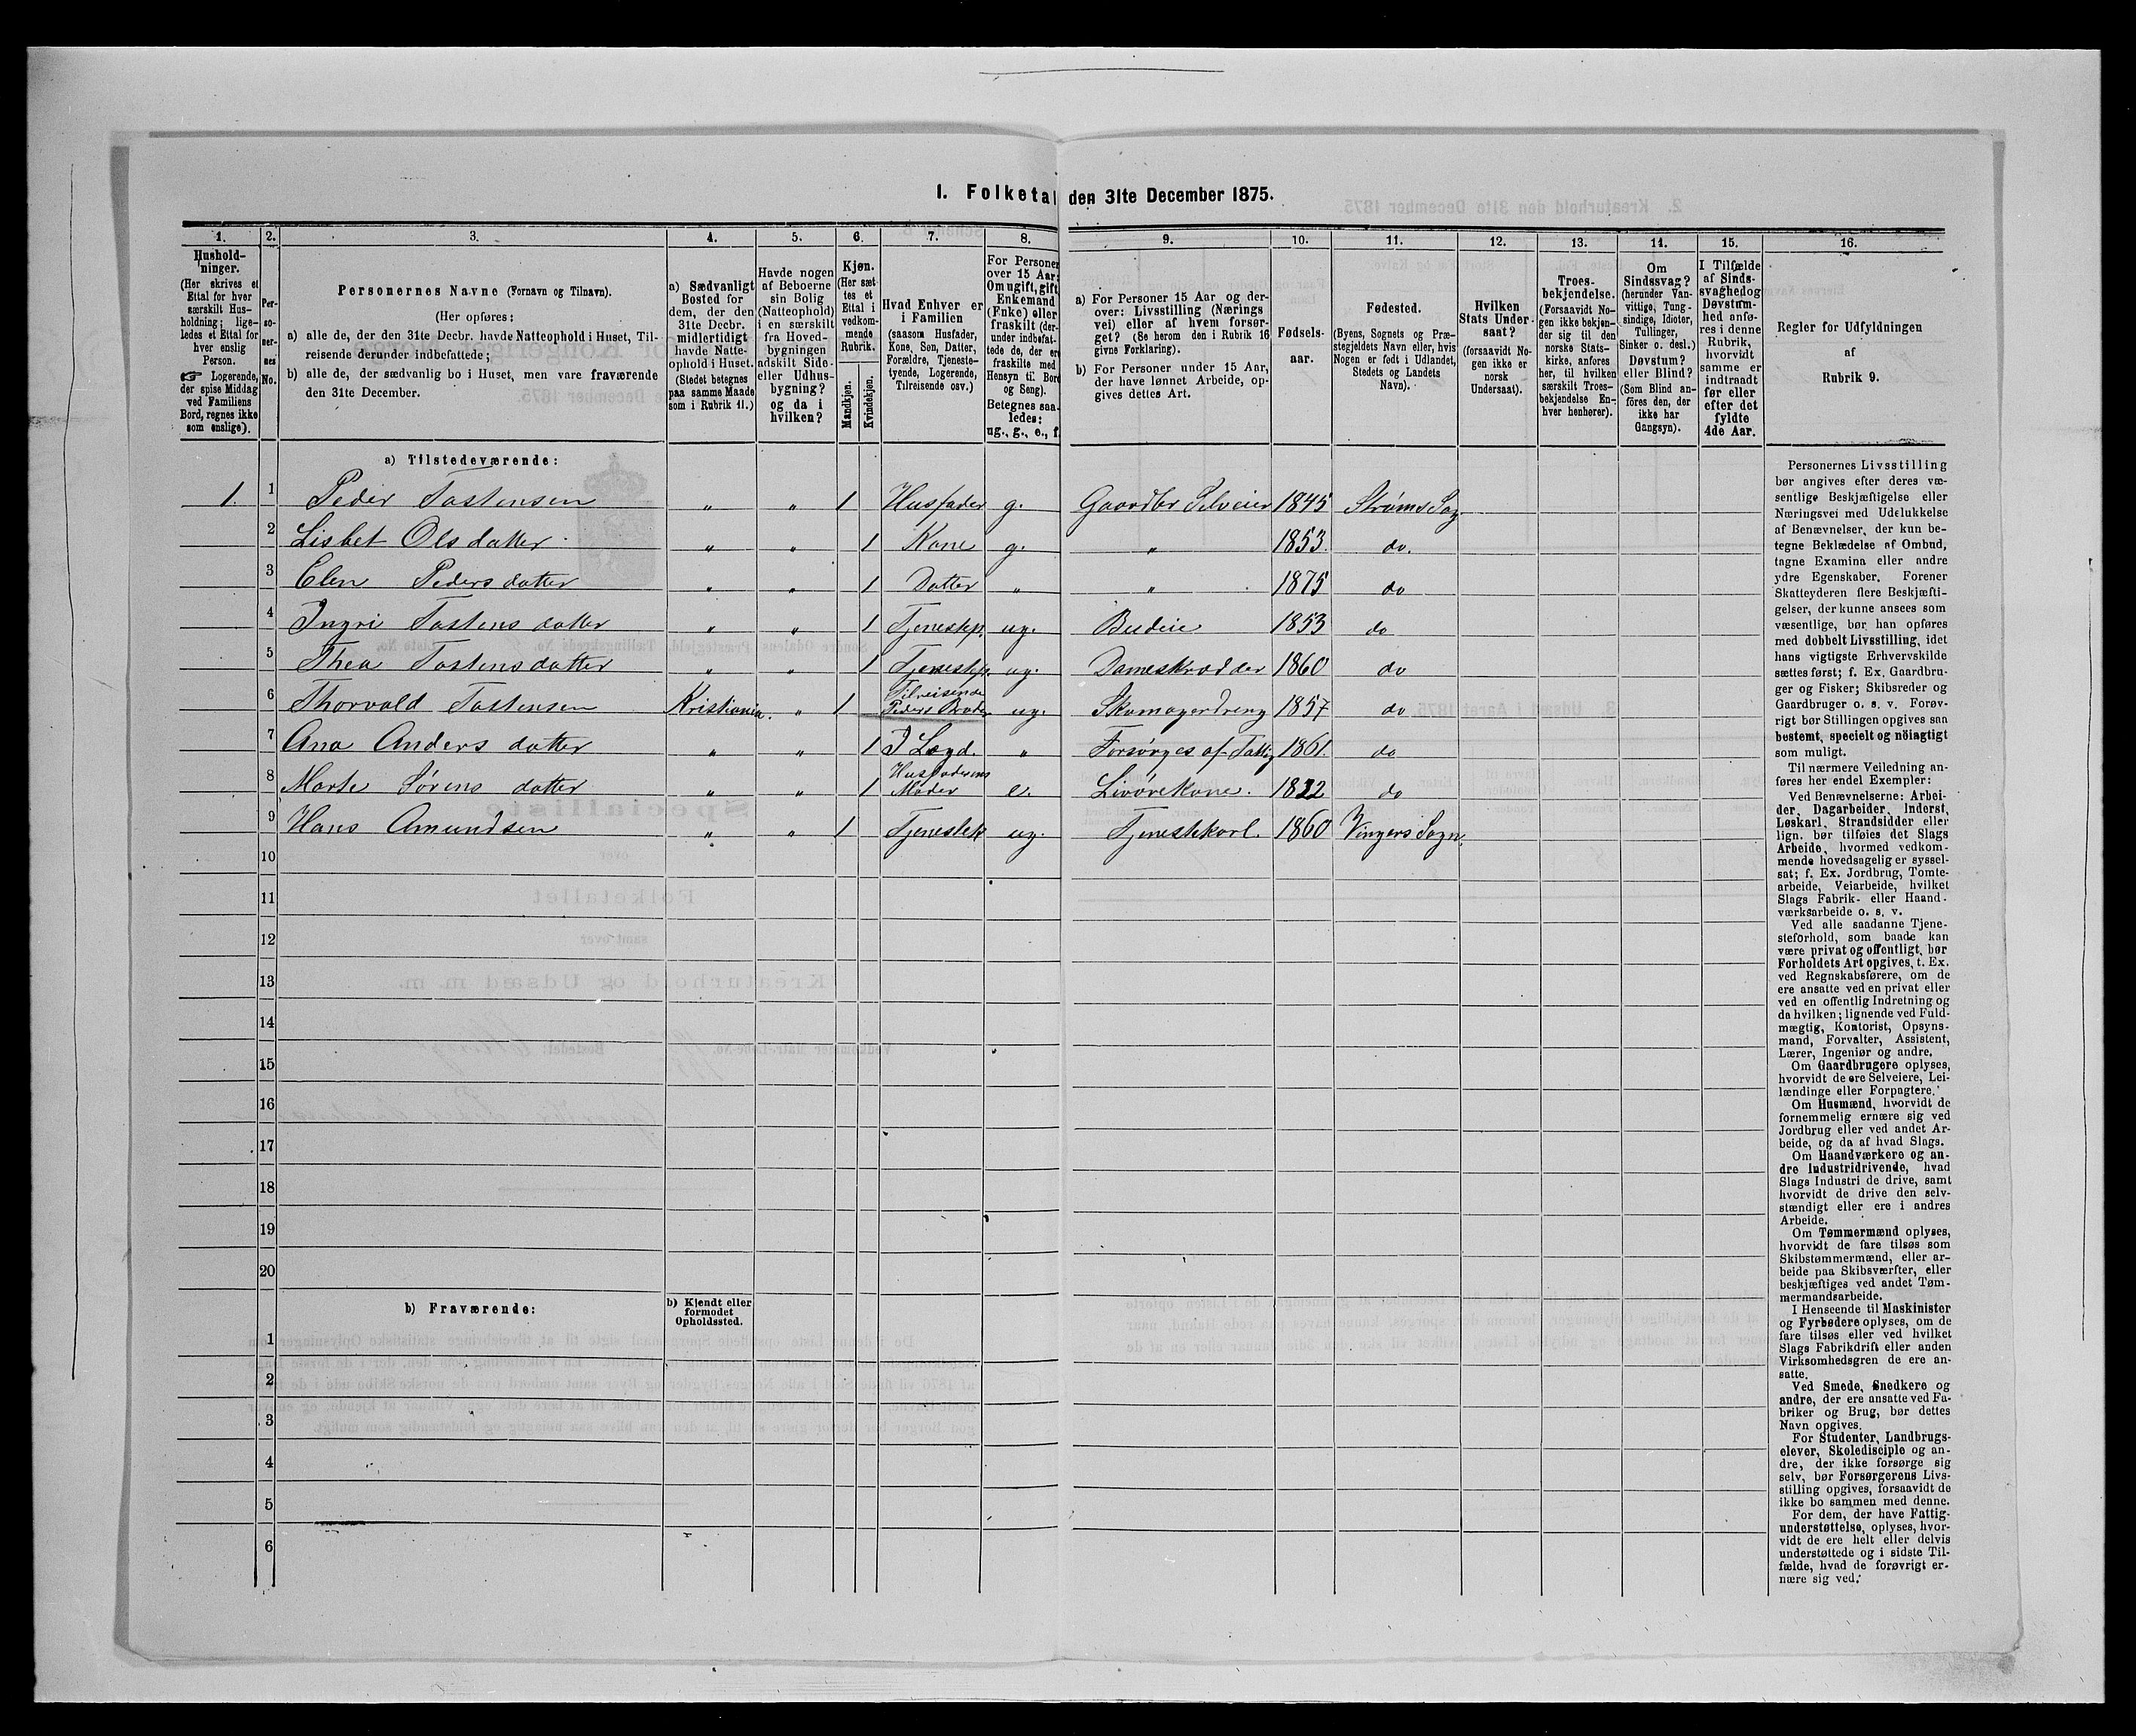 1. Folketal den 31te December 1875.
1. 2. 3. 4. 5. 6. 7. 8. 9. 10. 11. 12. 13. 14. 15. 16.
Husholdninger.
(Her skrives et
Ettal for hver
særskilt Hus-
holdning; lige-
ledes et Ettal for
hver enslig
Person.
☞ Logerende,
der spise Middag
ved Familiens
Bord, regnes ikke
som enslige).
Per-
so-
ner-
nes
No.
Personernes Navne (Fornavn og Tilnavn).
(Her opføres:
a) alle de, der den 31te Decbr. havde Natteophold i Huset, Til-
reisende derunder indbefattede;
b) alle de, der sædvanlig bo i Huset, men vare fraværende
den 31te December.
a) Sædvanligt
Bosted for
dem, der den
31te Decbr.
midlertidigt
havde Natte-
ophold i Huset.
(Stedet betegnes
paa samme Maade
som i Rubrik 11.)
Havde nogen
af Beboerne
sin Bolig
(Natteophold)
i en særskilt
fra Hoved-
bygningen
adskilt Side-
eller Udhus-
bygning?
og da i
hvilken?
Kjøn.
(Her sæt-
tes et
Ettal i
vedkom-
mende
Rubrik.
Mandkjøn.
Kvindekjøn.
Hvad Enhver er
i Familien
(saasom Husfader,
Kone, Søn, Datter,
Forældre, Tjeneste-
tyende, Logerende,
Tilreisende osv.)
For Personer
over 15 Aar:
Om ugift, gift,
Enkemand
(Enke) eller
fraskilt (der-
under indbefat-
tede de, der ere
fraskilte med
Hensyn til Bord
og Seng).
Betegnes saa-
ledes:
ug., g., e., f.
a) For Personer 15 Aar og der-
over: Livsstilling (Nærings
vei) eller af hvem forsør-
get? (Se herom den i Rubrik 16
givne Forklaring).
b) For Personer under 15 Aar,
der have lønnet Arbeide, op-
gives dettes Art.
Fødsels-
aar.
Fødested.
(Byens, Sognets og Præ-
stegjeldets Navn eller, hvis
Nogen er født i Udlandet,
Stedets og Landets
Navn).
Hvilken
Stats Under-
saat?
(forsaavidt No-
gen ikke er
norsk
Undersaat).
Troes-
bekjendelse.
(Forsaavidt No-
gen ikke bekjen-
der sig til den
norske Stats-
kirke, anføres
her, til hvilken
særskilt Troes-
bekjendelse En-
hver henhører).
Om
Sindssvag?
(herunder Van-
vittige, Tung-
sindige, Idioter,
Tullinger,
Sinker o. desl.)
Døvstum?
eller Blind?
(Som Blind an-
föres den, der
ikke har
Gangsyn).
I Tilfælde
af Sinds-
svaghed og
Døvstum-
hed anfø-
res i denne
Rubrik,
hvorvidt
samme er
indtraadt
før eller
efter det
fyldte
4de Aar.
Regler for Udfyldningen
af
Rubrik 9.
a) Tilstedeværende:
1. 1 Peder Tostensen " " 1 Husfader g. Gaardbr Selveier 1845 Strøms Sog
2 Lisbet Olsdatter " " 1 Kone g. " 1853. do.
3 Elen Pedersdatter " " 1 Datter " " 1875 do
4 Ingri Tostensdatter " " 1 Tjenestep. ug. Budeie 1853 do
5 Thea Tostensdatter " " 1 Tjenestep. ug. Dameskrædder 1860 do
6 Thorvald Tostensen Kristiania. " 1 Tilreisende Peders Broder ug. Skomagerdreng 1857 do
7 Ana Andersdatter " " 1 I Lægd. " Forsørges af Fattig 1861. do
8 Marte Sørensdatter " " 1 Husfaderens Moder e. Livørekone. 1822 do
9 Hans Amundsen " " 1 Tjenestek ug. Tjenestekarl. 1860 Vingers Sogn.
10
11
12
13
14
15
16
17
18
19
20
b) Fraværende:
b) Kjendt eller
formodet
Opholdssted.
1
2
3
4
5
6
Personernes Livsstilling
bør angives efter deres væ-
sentlige Beskjæftigelse eller
Næringsvei med Udelukkelse
af Benævnelser, der kun be-
tegne Beklædelse af Ombud,
tagne Examina eller andre
ydre Egenskaber. Forener
Skatteyderen flere Beskjæfti-
gelser, der kunne ansees som
væsentlige, bør han opføres
med dobbelt Livsstilling, idet
hans vigtigste Erhvervskilde
sættes først; f. Ex. Gaardbru-
ger og Fisker; Skibsreder og
Gaardbruger o. s. v. Forøv-
rigt bør Stillingen opgives saa
bestemt, specielt og nöiagtigt
som muligt.
Til nærmere Veiledning an-
føres her endel Exempler:
Ved Benævnelserne: Arbei-
der, Dagarbeider, Inderst,
Løskarl, Strandsidder eller
lign. bør tilføies det Slags
Arbeide, hvormed vedkom-
mende hovedsagelig er syssel-
sat; f. Ex. Jordbrug, Tomte-
arbeide, Veiarbeide, hvilket
Slags Fabrik- eller Haand-
værksarbeide o. s. v.
Ved alle saadanne Tjene-
steforhold, som baade kan
være privat og offentligt, bør
Forholdets Art opgives, t. Ex.
ved Regnskabsførere, om de
ere ansatte ved en privat eller
ved en offentlig Indretning og
da hvilken; lignende ved Fuld-
mægtig, Kontorist, Opsyns-
mand, Forvalter, Assistent,
Lærer, Ingeniør og andre.
Om Gaardbrugere oplyses,
hvorvidt de ere Selveiere, Lei-
lændinge eller Forpagtere.
Om Husmænd, hvorvidt de
fornemmelig ernære sig ved
Jordbrug eller ved andet Ar-
beide, og da af hvad Slags.
Om Haandværkere og an-
dre Industridrivende, hvad
Slags Industri de drive, samt
hvorvidt de drive den selv-
stændigt eller ere i andres
Arbeide.
Om Tømmermænd oplyses,
hvorvidt de fare tilsøs som
Skibstømmermænd, eller ar-
beide paa Skibsværfter, eller
beskjæftiges ved andet Tøm-
mermandsarbeide.
I Henseende til Maskinister
og Fyrbødere oplyses, om de
fare tilsøs eller ved hvilket
Slags Fabrikdrift eller anden
Virksomhedsgren de ere an-
satte.
Ved Smede, Snedkere og
andre, der ere ansatte ved Fa-
briker og Brug, bør dettes
Navn opgives.
For Studenter, Landbrugs-
elever, Skoledisciple og an-
dre, der ikke forsørge sig
selv, bør Forsørgerens Livs-
stilling opgives, forsaavidt de
ikke bo sammen med denne.
For dem, der have Fattig-
understøttelse, oplyses, hvor-
vidt de ere helt eller delvis
understøttede og i sidste Til-
fælde, hvad de forøvrigt er-
nære sig ved.